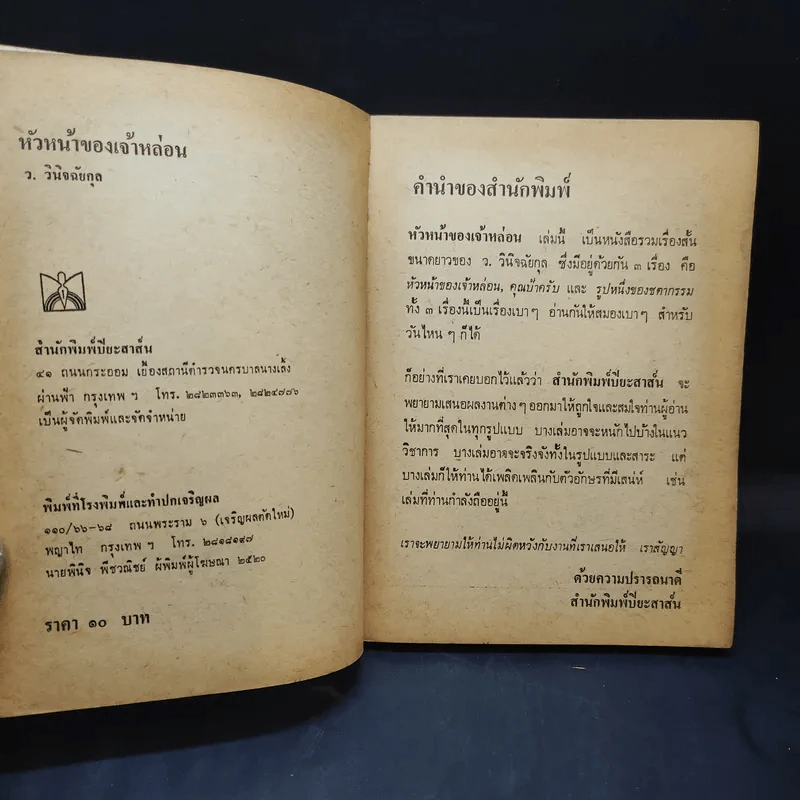 หัวหน้าของเจ้าหล่อน
ว. วินิจฉัยกุล
สำนักพิมพ์ปิยะสาส์น
๔๑ ถนนกระออม เยื้องสถานีตำรวจนครบาลนางเลิ้ง
ผ่านฟ้า กรุงเทพ ฯ โทร. ๒๘๒๓๓๖๓, ๒๘๒๔๗๗๖
เป็นผู้จัดพิมพ์และจัดจำหน่าย
พิมพ์ที่โรงพิมพ์และทำปกเจริญผล
๑๑๐/๖๖–๖๘ ถนนพระราม ๖ (เจริญผลตัดใหม่)
พญาไท กรุงเทพ ฯ โทร. ๒๘๑๘๑๙๗
นายพินิจ พืชวณิชย์ ผู้พิมพ์ผู้โฆษณา ๒๕๒๐
ราคา ๑๐ บาท
คำนำของสำนักพิมพ์
หัวหน้าของเจ้าหล่อน เล่มนี้ เป็นหนังสือรวมเรื่องสั้น
ขนาดยาวของ ว. วินิจฉัยกุล ซึ่งมีอยู่ด้วยกัน ๓ เรื่อง คือ
หัวหน้าของเจ้าหล่อน, คุณป้าครับ และ รูปหนึ่งของชตากรรม
ทั้ง ๓ เรื่องนี้เป็นเรื่องเบาๆ อ่านกันให้สมองเบาๆ สำหรับ
วันไหน ๆ ก็ได้
ก็อย่างที่เราเคยบอกไว้แล้วว่า สำนักพิมพ์ปิยะสาส์น จะ
พยายามเสนอผลงานต่างๆ ออกมาให้ถูกใจและสมใจท่านผู้อ่าน
ให้มากที่สุดในทุกรูปแบบ บางเล่มอาจจะหนักไปบ้างในแนว
วิชาการ บางเล่มอาจจะจริงจังทั้งในรูปแบบและสาระ แต่
บางเล่มก็ให้ท่านได้เพลิดเพลินกับตัวอักษรที่มีเสน่ห์ เช่น
เล่มที่ท่านกำลังถืออยู่นี้
เราจะพยายามให้ท่านไม่ผิดหวังกับงานที่เราเสนอให้ เราสัญญา
ด้วยความปรารถนาดี
สำนักพิมพ์ปิยะสาส์น